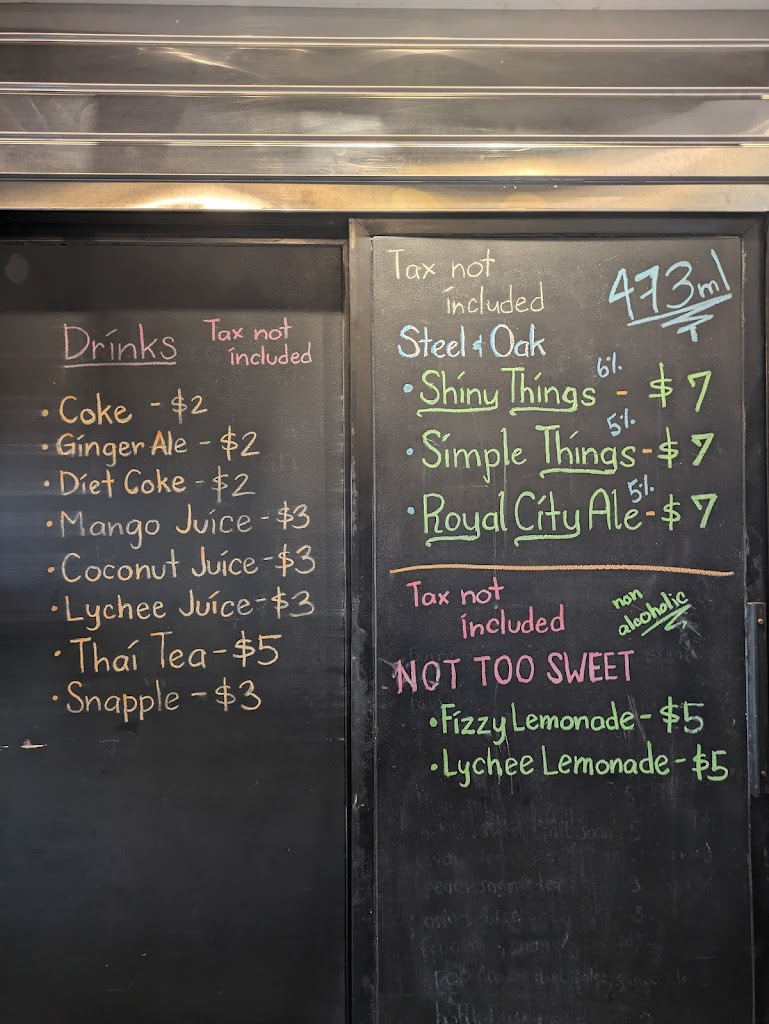 Drinks Tax not
included
• Coke - $2
• Ginger Ale - $2
• Diet Coke - $2
• Mango Juice - $3
• Coconut Juice - $3
• Lychee Juice - $3
• Thai Tea - $5
• Snapple - $3
Tax not
included
473ml
Steel & Oak
• Shiny Things 6% - $7
• Simple Things 5% - $7
• Royal City Ale 5% - $7
Tax not
included
non
alcoholic
NOT TOO SWEET
• Fizzy Lemonade - $5
• Lychee Lemonade - $5